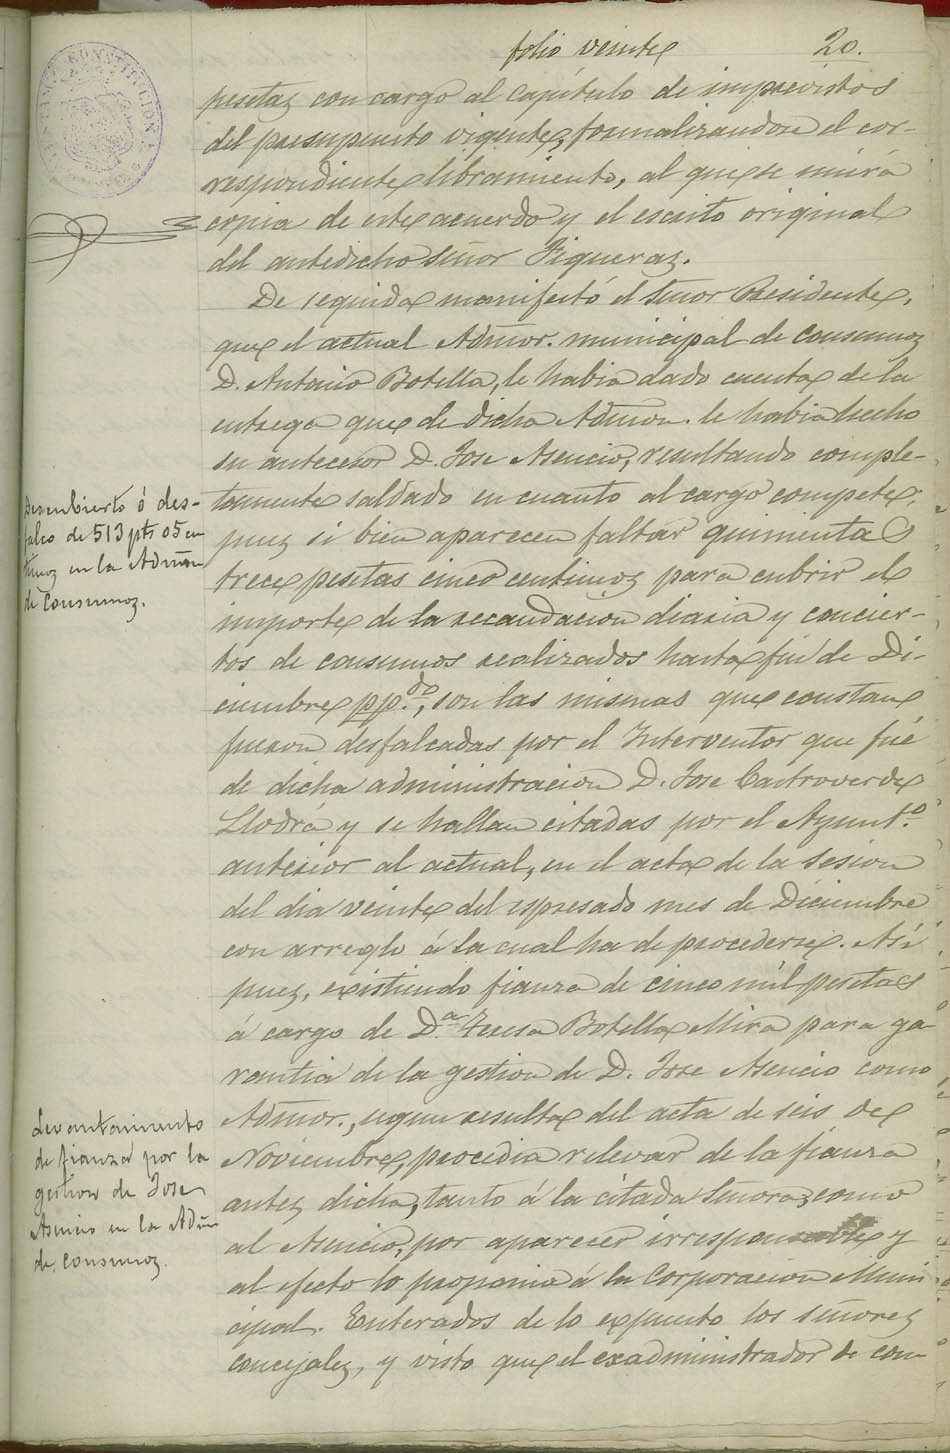 folio veinte 20.
pesetas con cargo al capítulo de imprevistos
del presupuesto vigente, formalizandose el cor-
respondiente libramiento, al que se unirá
copia de este acuerdo y el escrito original
del antedicho señor Figueras.
De seguida manifestó el Señor Presidente,
que el actual Admor. municipal de Consumos
D. Antonio Botella, le habia dado cuenta de la
entrega que de dicha Admon. le habia hecho
su antecesor D. Jose Asencio, resultando comple-
tamente saldado en cuanto al cargo compete;
pues si bien aparecen faltar quinientas
trece pesetas cinco centimos para cubrir el
importe de la recaudacion diaria y concier-
tos de consumos realizados hasta fin de Di-
ciembre pp.do, son las mismas que constan
fueron desfalcadas por el Interventor que fué
de dicha administracion D. Jose Castroverde
Llodrá y se hallan citadas por el Ayunt.o
anterior al actual, en el acta de la sesion
del dia veinte del espresado mes de Diciembre
con arreglo á la cual ha de procederse. Así
pues, existiendo fianza de cinco mil pesetas
á cargo de D.a Teresa Botella Mira para ga-
rantia de la gestion de D. Jose Asencio como
Admor., segun resulta del acta de seis de
Noviembre, procedia relevar de la fianza
antes dicha, tanto á la citada Señora, como
al Asencio, por aparecer irresponsable y
al efecto lo proponia á la Corporacion Muni
cipal. Enterados de lo expuesto los señores
concejales, y visto que el exadministrador de con-
Descubierto ó des-
falco de 513 pts 05 cen
timos en la Admon
de Consumos.
Levantamiento
de fianza por la
gestion de Jose
Asencio en la Admon
de consumos.
CONSTITUCION